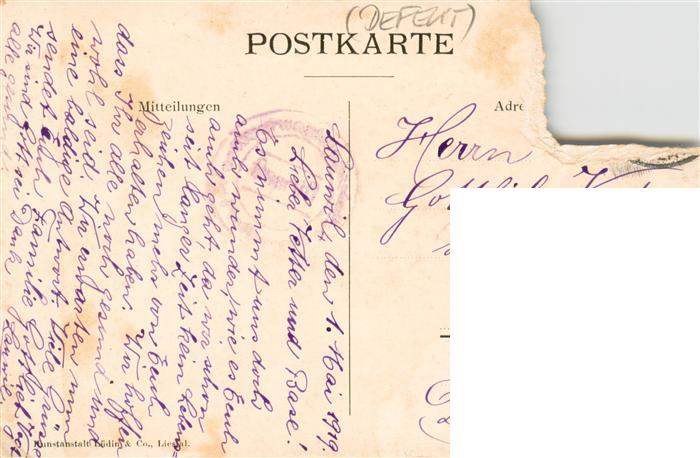 (DEFEKT)
POSTKARTE
Mitteilungen
Lauwil, den 1. Mai 1919.
Liebe Vetter und Base!
Es nimmt uns doch
auch wunder, wie es Euch
auch geht, da wir schon
seit langer Zeit kein Lebens=
zeichen mehr von Euch
erhalten haben. Wir hoffen
dass Ihr alle noch gesund und
wohl seid. Wir erwarten nun
eine baldige Antwort. Viele Grüsse
sendet Euch Familie Gottlieb
Wir sind Gott sei Dank
alle gesund.
Herrn
Gottlieb
Kunstanstalt Lüdin & Co., Liestal.